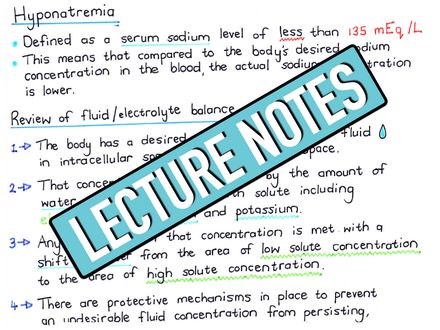 Hyponatremia
• Defined as a serum sodium level of less than 135 mEq/L
• This means that compared to the body's desired sodium
concentration in the blood, the actual sodium concentration
is lower.
Review of fluid/electrolyte balance
1→ The body has a desired fluid
in intracellular space.
2→ That by the amount of
water solute including
and potassium.
3→ Any that concentration is met with a
shift from the area of low solute concentration
to the area of high solute concentration.
4→ There are protective mechanisms in place to prevent
an undesirable fluid concentration from persisting,
LECTURE NOTES